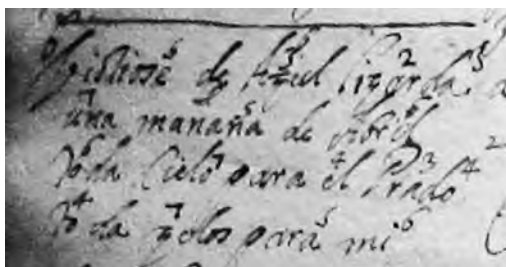 Vistiose de Azul Lizarda
vna mañana de Abril
toda Cielo para el Prado
toda zelos para mi